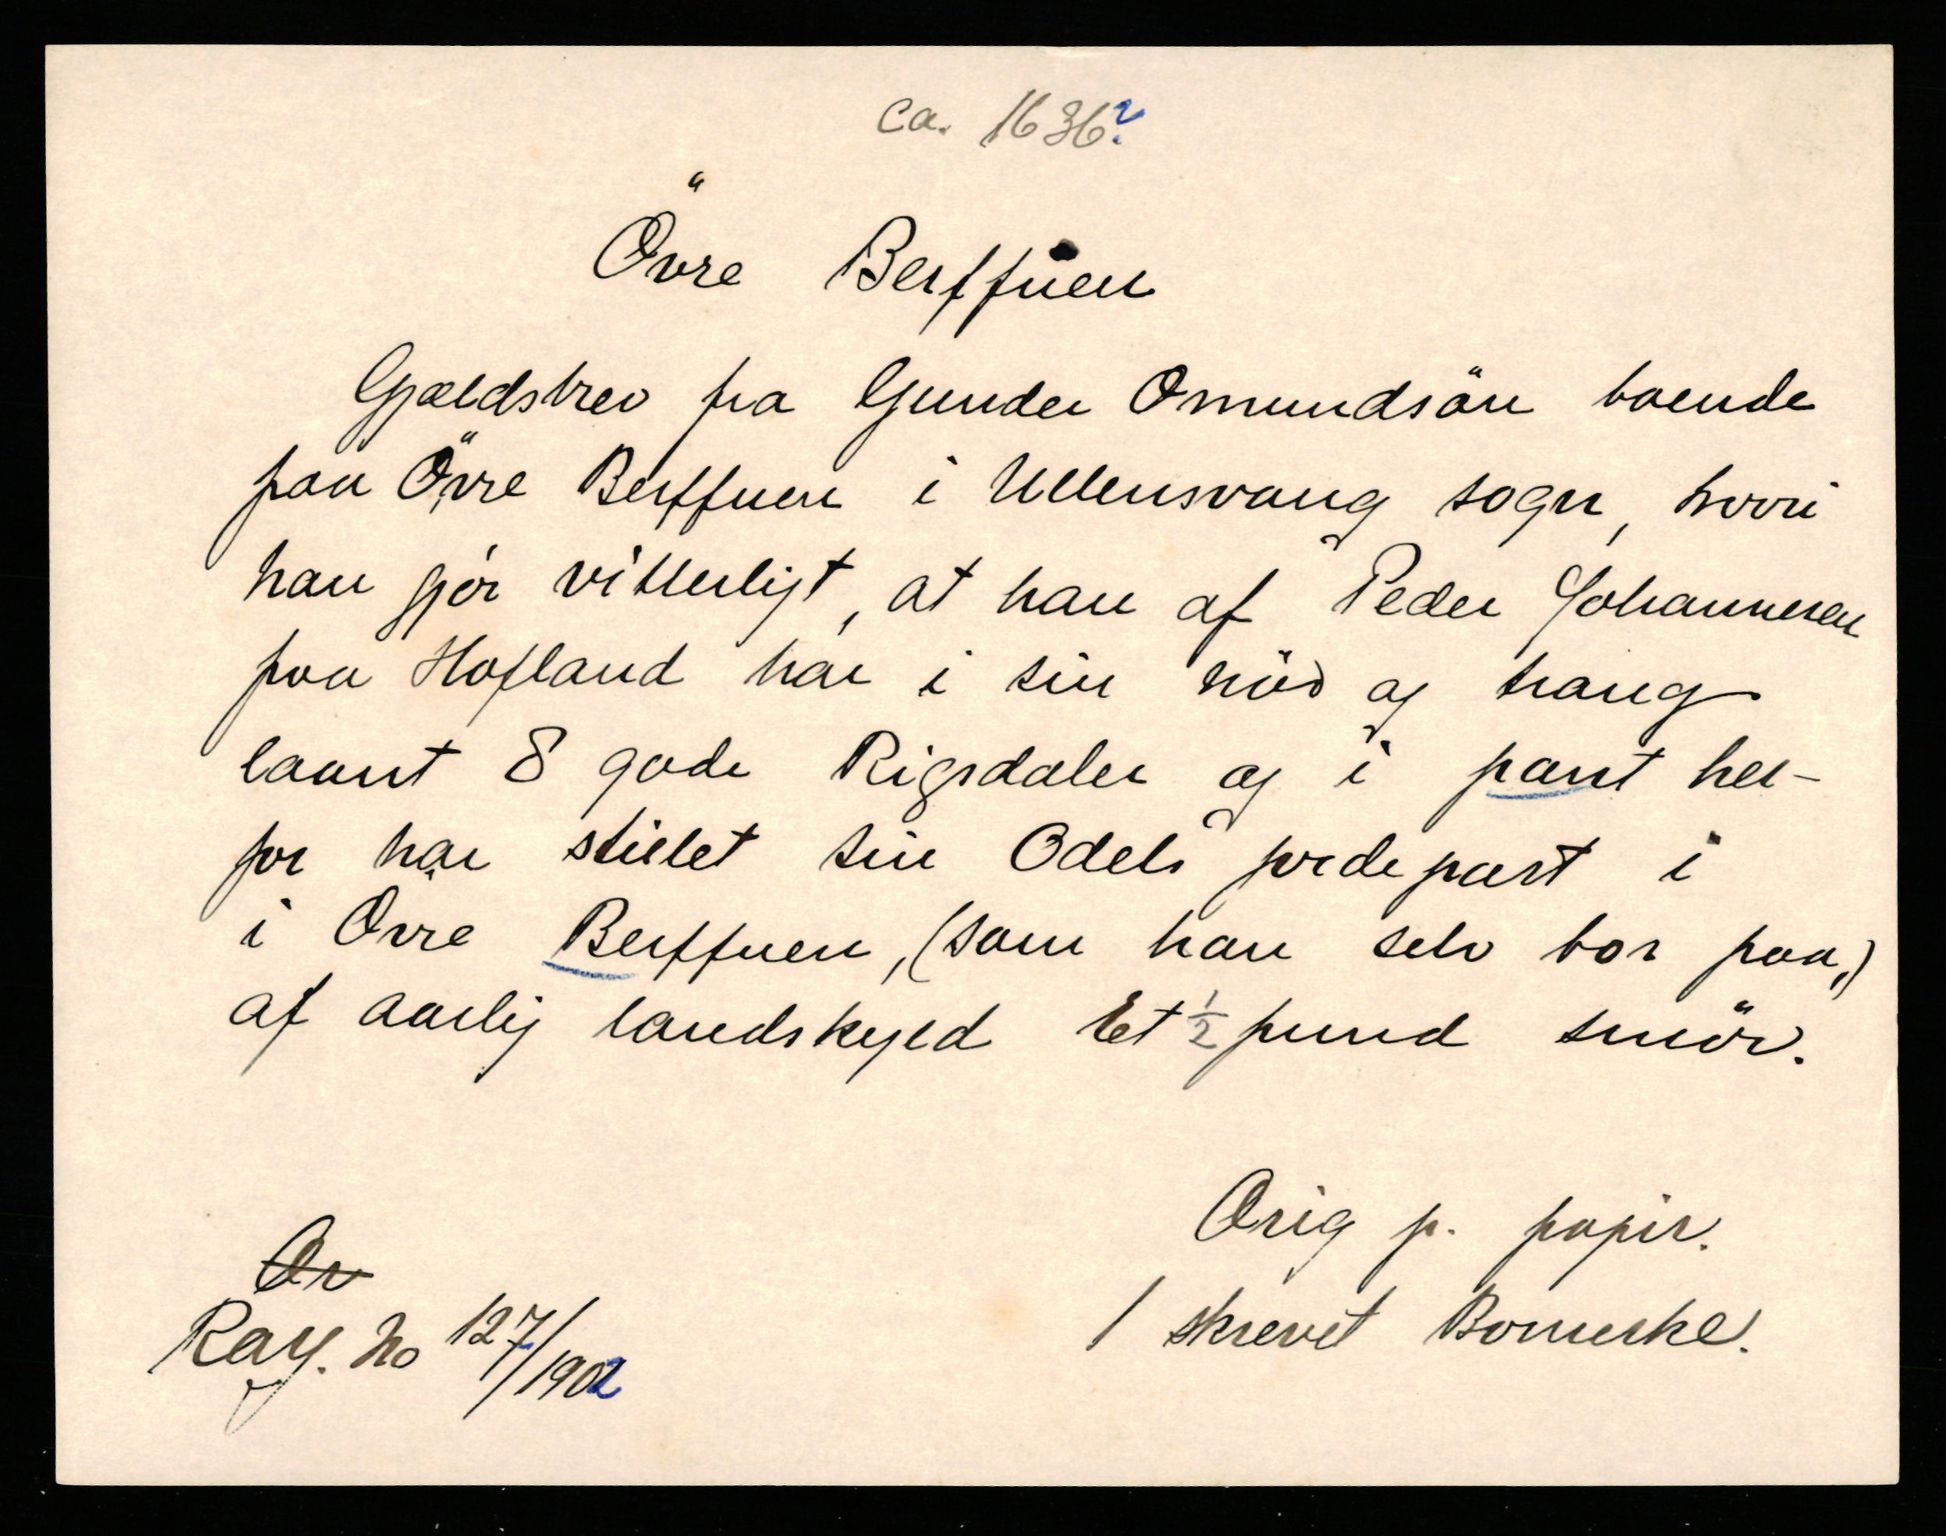 ca. 1636?
Övre Berffuen
Gjældsbrev fra Gunder Omundsön boende
paa Övre Berffuen i Ullensvang sogn, hvori
han gjör vitterligt, at han af Peder Johannesen
paa Hofland har i sin nöd og trang
laant 8 gode Rigsdaler og i pant her-
for har stillet sin Odels jordepart i
i Övre Berffuen, (som han selv bor paa,)
af aarlig landskyld Et ½ pund smör.
Orig p. papir.
1 skrevet
No 127/1902